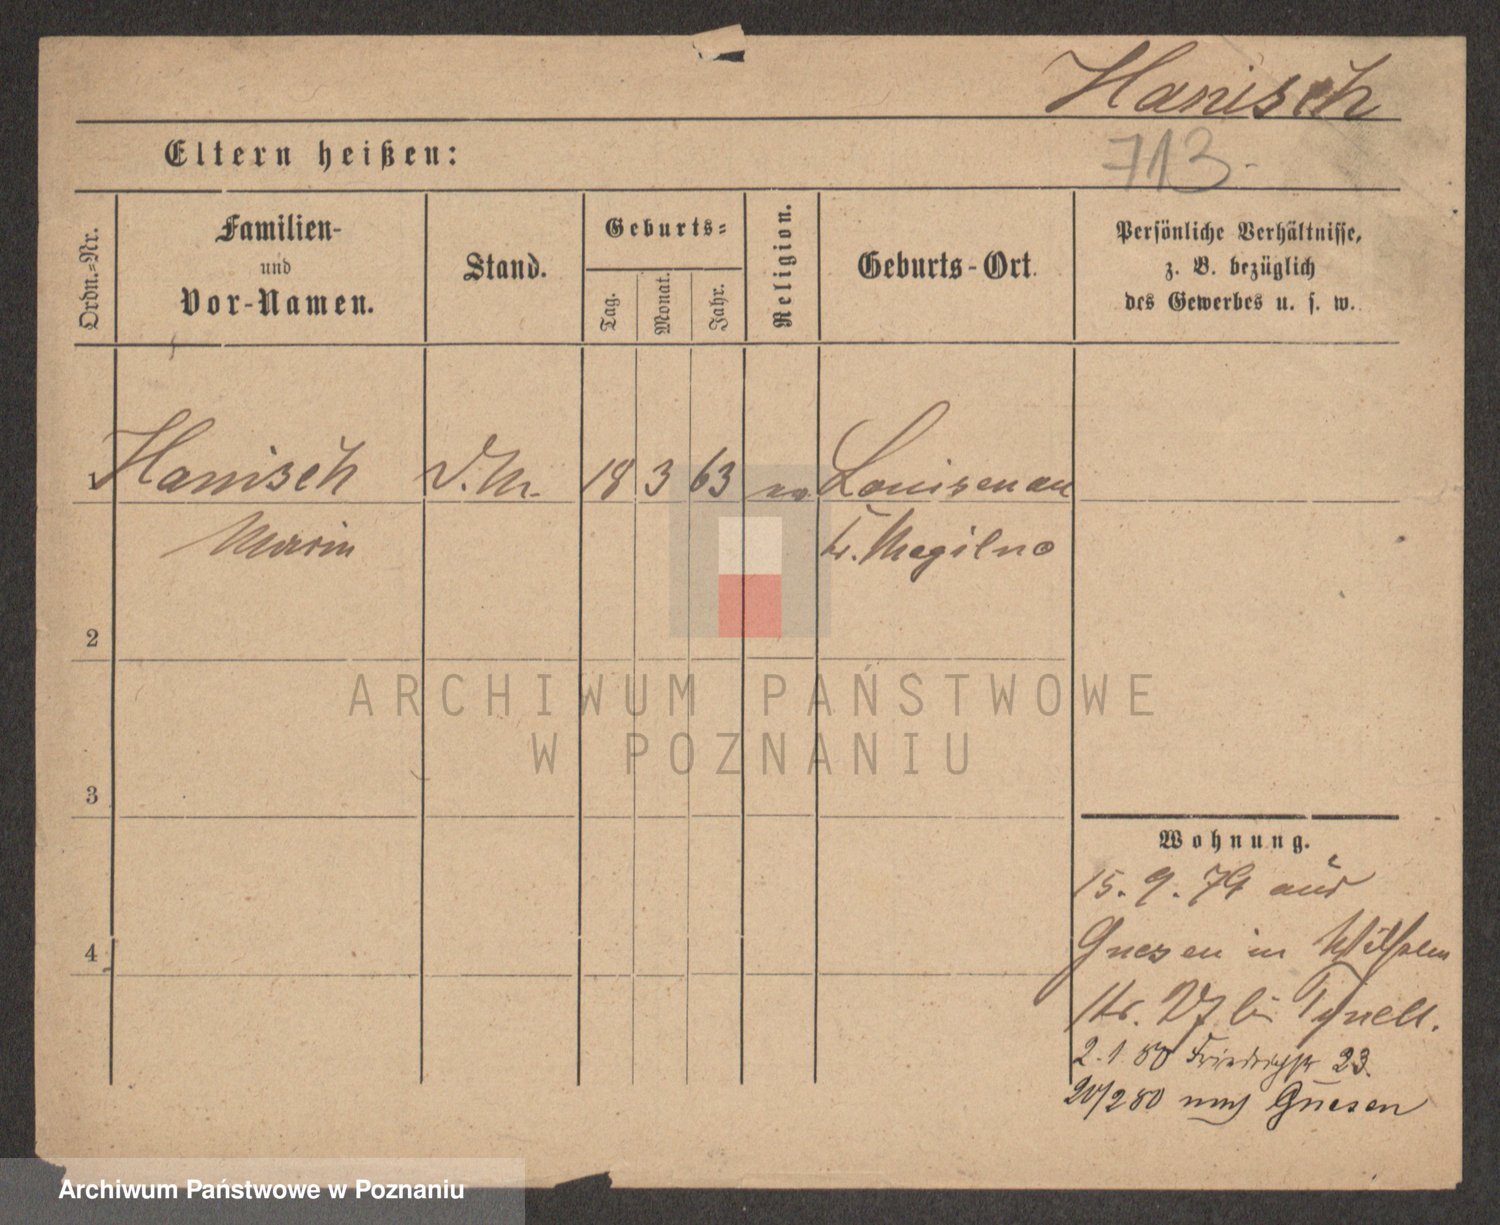 Hanisch
713.
Eltern heißen:
Ordn.-Nr.
Familien-
und
Vor-Namen.
Stand.
Geburts-
Tag.
Monat.
Jahr.
Religion.
Geburts-Ort.
Persönliche Verhältnisse,
z. B. bezüglich
des Gewerbes u. s. w.
1 Hanisch 18 3 63 ev. Louisenau
Kr. Mogilno
2
3
4
Wohnung.
15. 9. 79 aus
Gnesen in Wilhelm
str. 27 bei
2. 1. 80 Friedrichstr 23.
20/2 80 nach Gnesen
ARCHIWUM PAŃSTWOWE
W POZNANIU
Archiwum Państwowe w Poznaniu